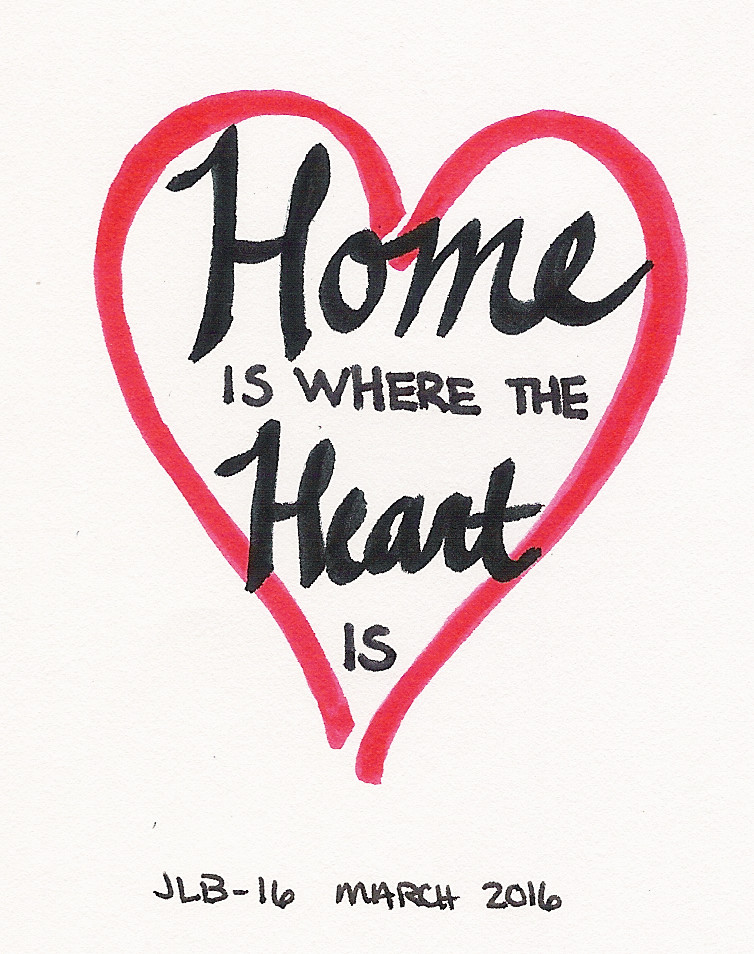 Home
IS WHERE THE
Heart
IS
JLB-16 MARCH 2016